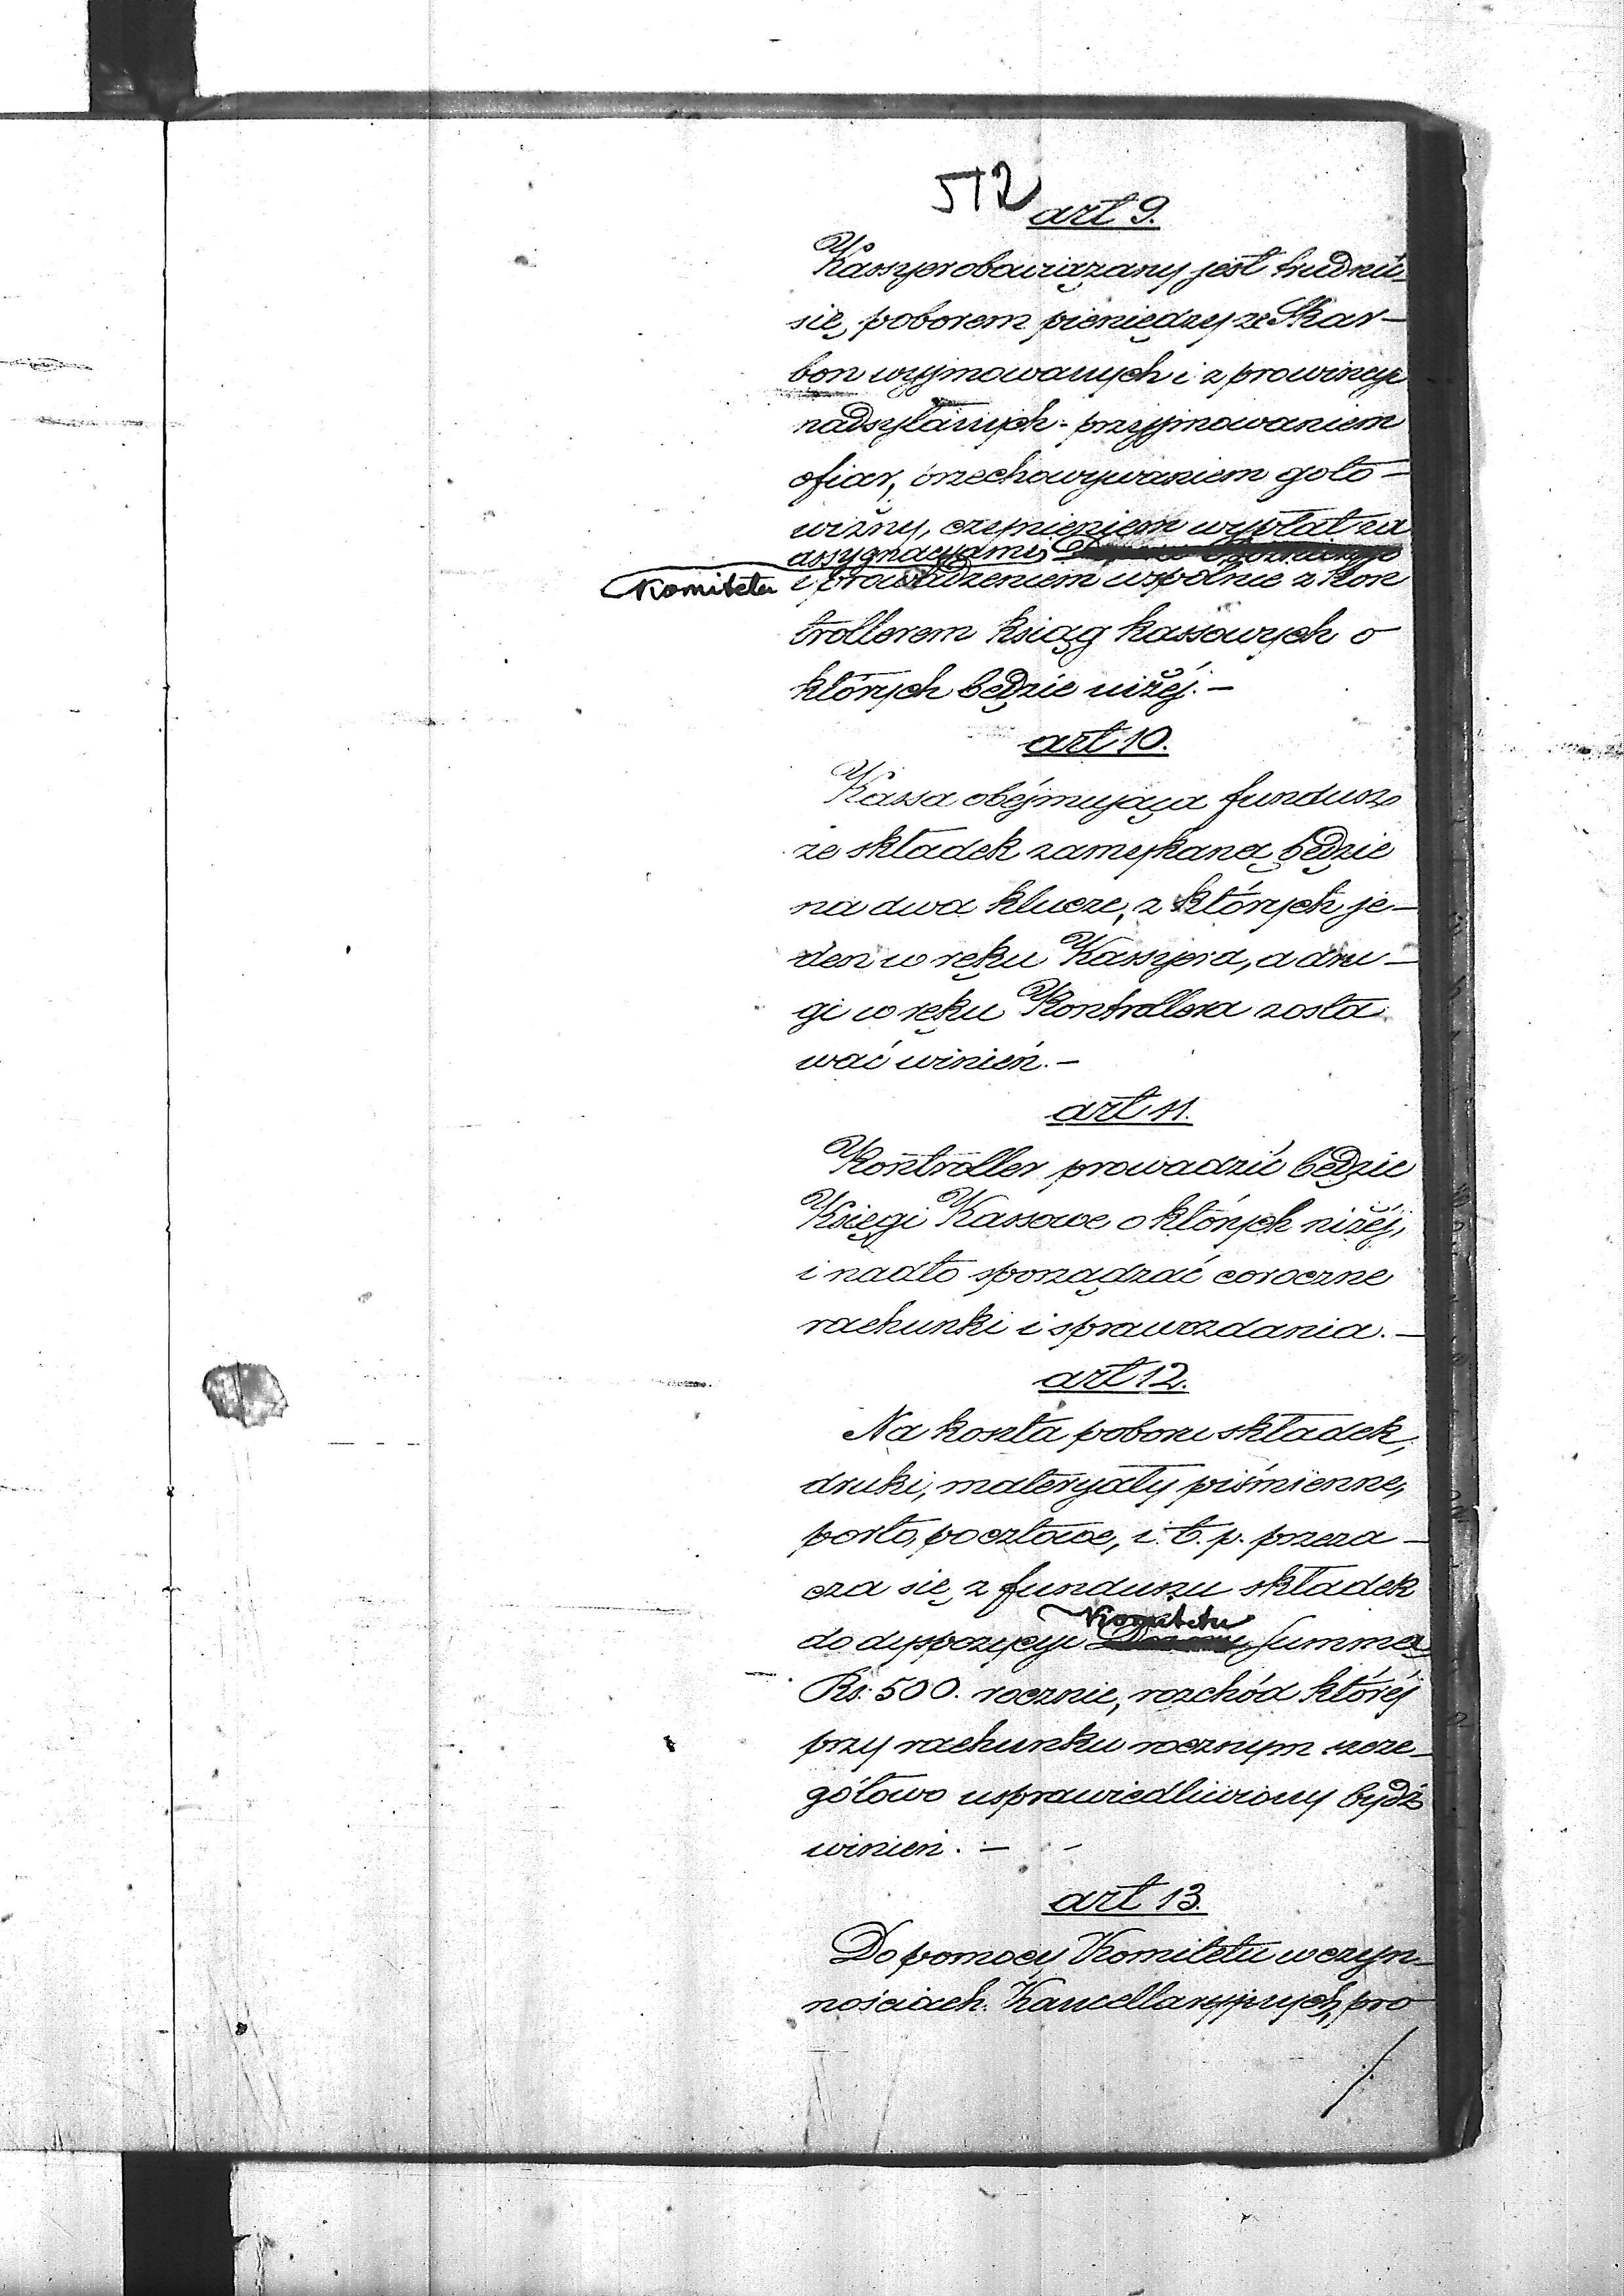 512
art 9.
Kassyer obowiązany jest trudnić
się, poborem pieniędzy ze Skar-
bon wyjmowanych i z prowincyi
nadsyłanych - przyjmowaniem
ofiar, przechowywaniem goto-
wizny, czynieniem wypłat za
assygnacyami
Komitetu i prowadzeniem wspólnie z Kon
trollerem ksiąg kassowych o
których będzie niżéj. -
art 10.
Kassa obéjmująca fundusz
ze składek zamykaną będzie
na dwa klucze, z których je-
den w ręku Kassyera, a dru-
gi w ręku Kontrollera zosta
wać winień. -
art 11.
Kontroller prowadzić będzie
Księgi Kassowe o których niżéj,
i nadto sporządzać coroczne
rachunki i sprawozdania. -
art 12.
Na koszta poboru składek,
druki, materyały piśmienne,
porto, pocztowe, i t. p. przezna-
cza się z funduszu składek
do dyspozycyi Komitetu summa
Rs. 500. rocznie, rozchód któréj
przy rachunku rocznym szcze-
gółowo usprawiedliwiony bydź
winien. -
art 13.
Do pomocy Komitetu w czyn-
nościach Kancellaryjnych, pro